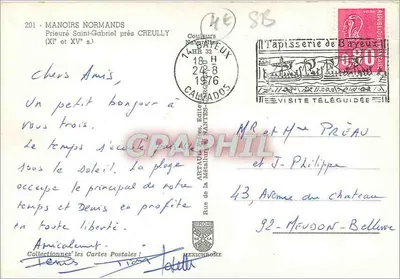 201 - MANOIRS NORMANDS
Prieuré Saint-Gabriel près CREULLY
(XIe et XVe s.)
Couleurs
4E SB
14 BAYEUX
18 H
24-8
1976
CALVADOS
Tapisserie de Bayeux
VISITE TÉLÉGUIDÉE
0,80
Chers Amis,
Un petit bonjour à
vous trois.
Le temps s'écoule
sous le soleil. La plage
occupe le principal de notre
temps et Denis en profite
en toute liberté.
Amicalement
Denis
Collectionnez les Cartes Postales !
MEXICHROME
CPAPHIL
MR et Mme PRÉAU
et J. Philippe
43, Avenue du Chateau
92 - MEUDON-Bellevue